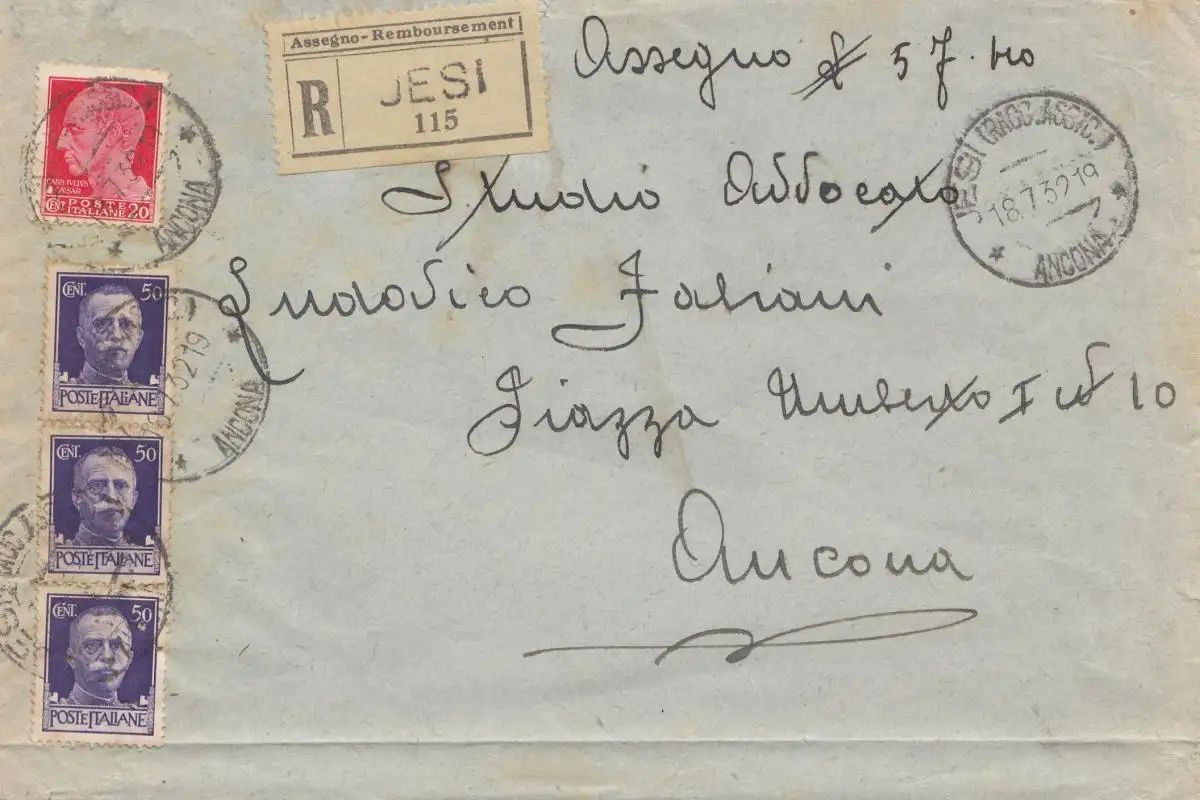 Assegno-Remboursement
R JESI
115
Assegno £ 57.
JESI (RACC. ASSIC.)
18.7.32 19
ANCONA
Studio Avvocato
Ludovico Fabiani
Piazza Umberto I N 10
Ancona
CAIVS IVLIVS
CAESAR
CENT. POSTE
ITALIANE 20
ANCONA
CENT. 50
POSTE ITALIANE
7.32 19
ANCONA
CENT. 50
POSTE ITALIANE
CENT. 50
POSTE ITALIANE